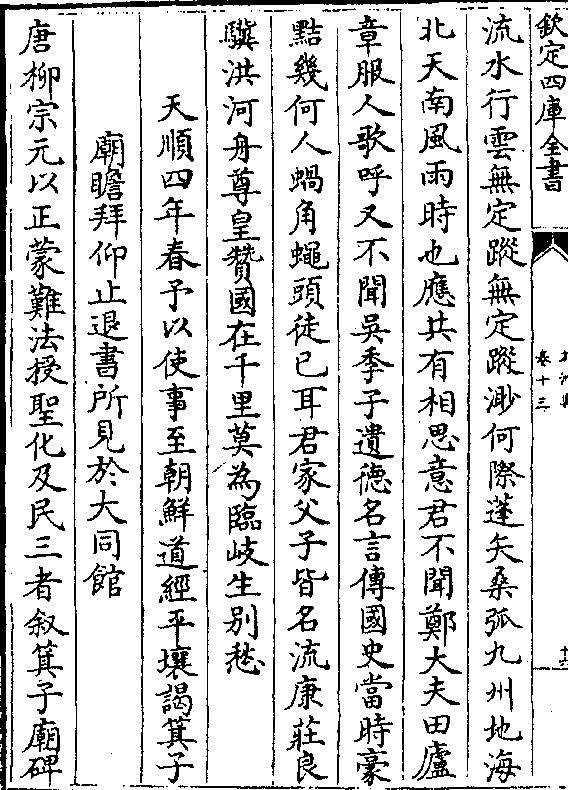 欽定四庫全書
卷十三
流水行雲無定蹤無定蹤渺何際蓬矢桑弧九州地海
北天南風雨時也應共有相思意君不聞鄭大夫田廬
章服人歌呼又不聞吳季子遺德名言傳國史當時豪
黠幾何人蝸角蠅頭徒已耳君家父子皆名流康莊良
驥洪河舟尊皇贊國在千里莫為臨岐生別愁
天順四年春予以使事至朝鮮道經平壤謁箕子
廟瞻拜仰止退書所見於大同館
唐柳宗元以正蒙難法授聖化及民三者叙箕子廟碑